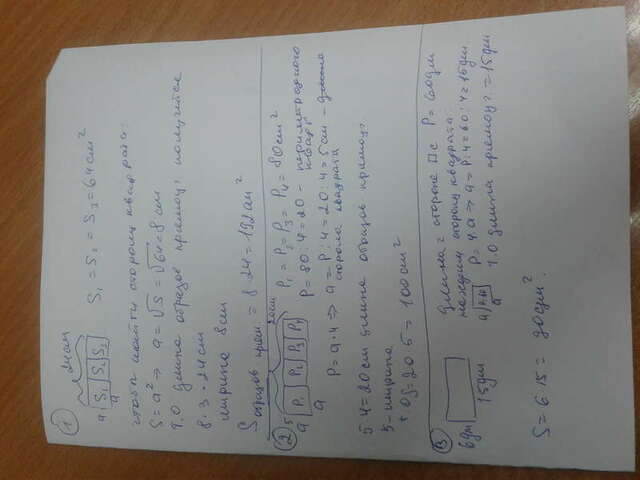 1
24 см
a S1 S2 S3
a
S1 = S2 = S3 = 64 см²
чтобы найти сторону квадрата:
S = a² => a = √S = √64 = 8 см
Т.О длина образов прямоуг получится
8 · 3 = 24 см
ширина 8 см
S образов прям. = 8 · 24 = 192 см²
2
20 см
5
a P1 P2 P3 P4
a
P1 = P2 = P3 = P4 = 80 см²
P = 80 : 4 = 20 - периметр одного
квадр
P = a · 4 => a = P : 4 = 20 : 4 = 5 см -
сторона квадрата
5 · 4 = 20 см длина образов прямоуг
5 - ширина
S = 20 · 5 = 100 см²
3
длина = стороне □ с P = 60 дм
находим сторону квадрата:
6 дм
15 дм
a
a
P = 4 · a => a = P : 4 = 60 : 4 = 15 дм
Т.О длина прямоуг = 15 дм
S = 6 · 15 = 90 дм².